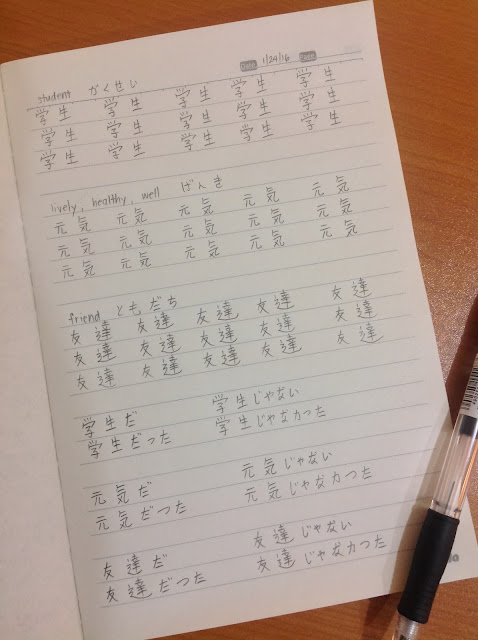 Date 1/24/16 Page
student がくせい
学生 学生 学生 学生 学生
学生 学生 学生 学生 学生
学生 学生 学生 学生 学生
lively, healthy, well げんき
元気 元気 元気 元気 元気
元気 元気 元気 元気 元気
元気 元気 元気 元気 元気
friend ともだち
友達 友達 友達 友達 友達
友達 友達 友達 友達 友達
友達 友達 友達 友達 友達
学生だ 学生じゃない
学生だった 学生じゃなかった
元気だ 元気じゃない
元気だった 元気じゃなかった
友達だ 友達じゃない
友達だった 友達じゃなかった